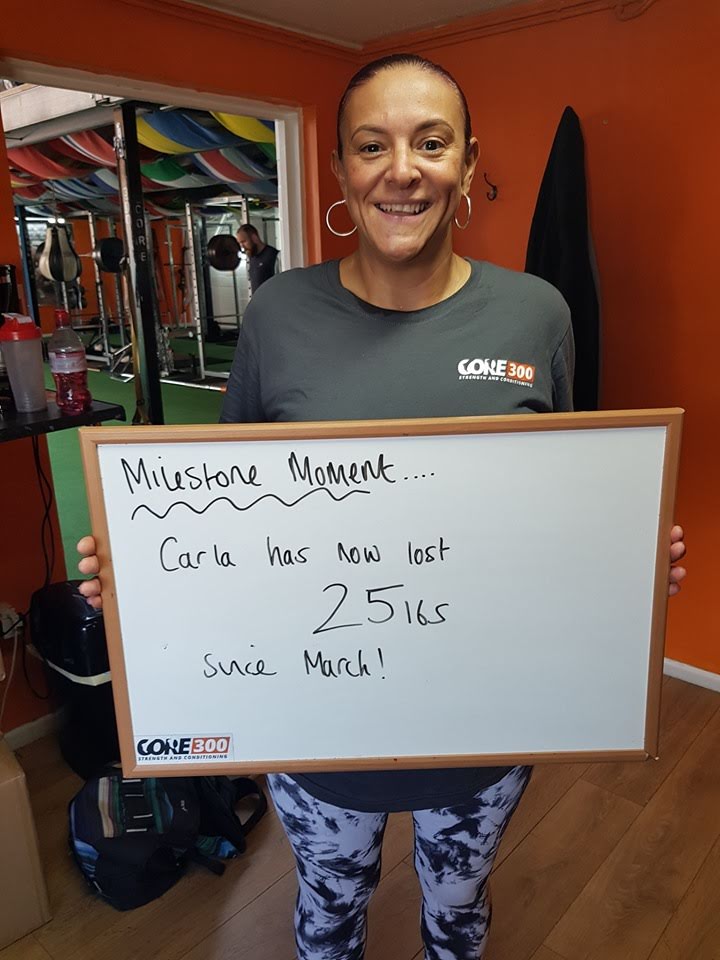 CORE 300
STRENGTH AND CONDITIONING
Milestone Moment....
Carla has now lost
25lbs
since March!
CORE 300
STRENGTH AND CONDITIONING